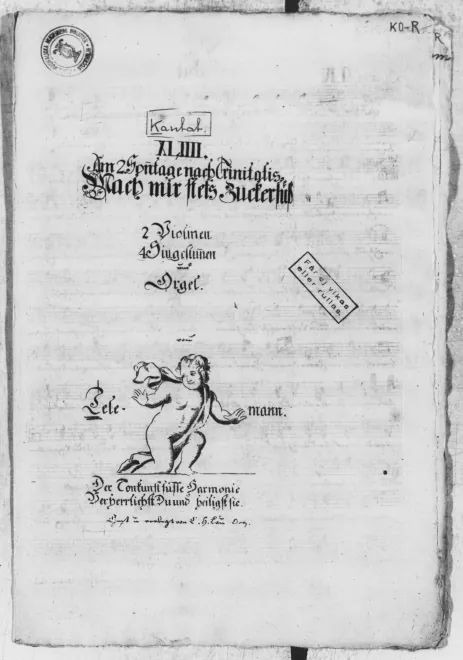 KO-R
R
Kantat.
XLIIII.
Am 2 Sontage nach Trinitatis.
Mach mir stets Zuckersüß
2 Violinen
4 Singestimen
und
Orgel.
Får ej vikas
eller rullas.
von
Tele- mann.
Der Tonkunst süsse Harmonie
Verherrlichst Du und heiligst sie.